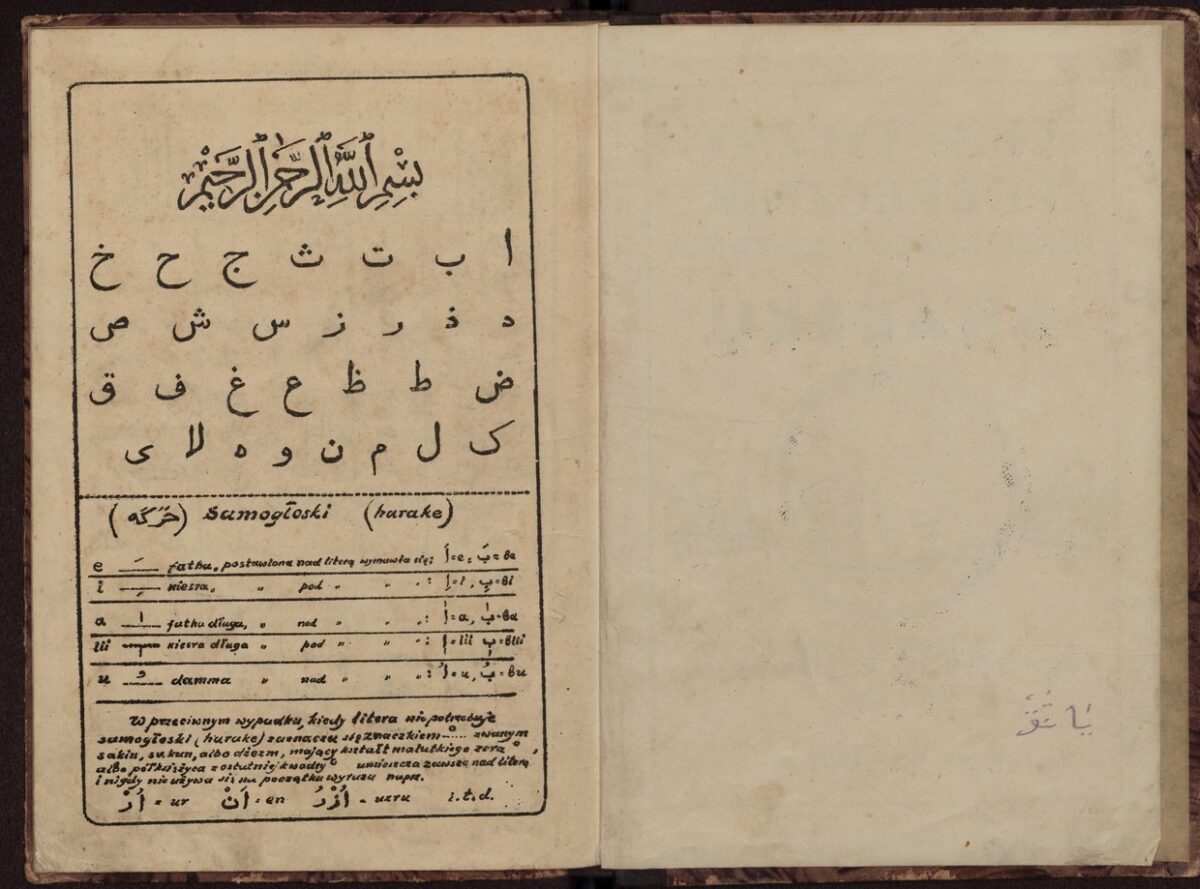 بِسْمِ ٱللَّهِ ٱلرَّحْمٰنِ ٱلرَّحِيْمِ
ا ب ت ث ج ح خ
د ذ ر ز س ش ص
ض ط ظ ع غ ف ق
ک ل م ن و ه لا ى
(حَرَكَه) Samogłoski (harake)
e — َ fatha, postawiona nad literą wymawia się: اَ=e, بَ=be
i — ِ kiesra, „ pod „ „ „: اِ=i, بِ=bi
a — ٰ fatha długa, „ nad „ „ „: اٰ=a, بٰ=ba
iii — ٖ kiesra długa „ pod „ „ „: اٖ=iii بٖ=biii
u — ُ damma „ nad „ „ „: اُ=u, بُ=bu
W przeciwnym wypadku, kiedy litera nie potrzebuje
samogłoski (harake) zaznacza się znaczkiem — ْ zwanym
sakin, sukun, albo dżezm, mający kształt malutkiego zera °,
albo półksiężyca z ostatniej kwadry umieszcza zawsze nad literą
i nigdy nie używa się na początku wyrazu napr.
اُرْ = ur اَنْ = en اُزْرُ = uzru i.t.d.